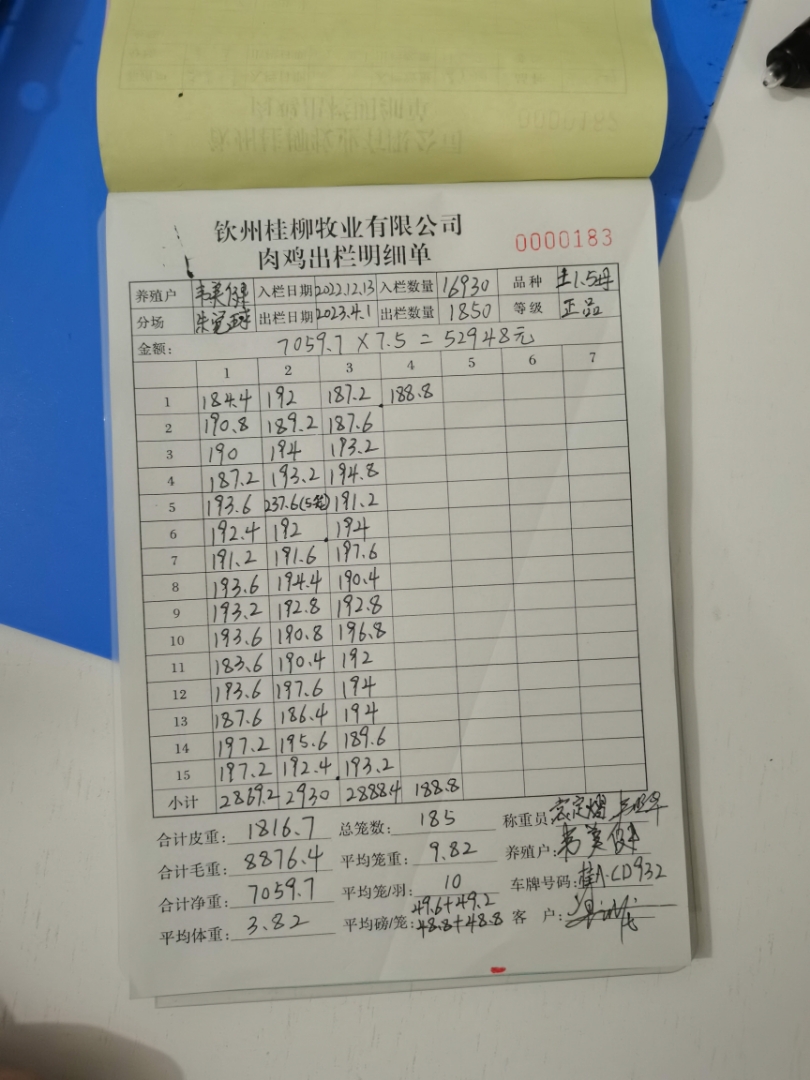 钦州桂柳牧业有限公司
肉鸡出栏明细单 0000183
养殖户 韦美健 入栏日期 2022.12.13 入栏数量 16930 品种 土1.5母
分场 出栏日期 2023.4.1 出栏数量 1850 等级 正品
金额: 7059.7 X 7.5 = 52948元
1 2 3 4 5 6 7
1 184.4 192 187.2 188.8
2 190.8 189.2 187.6
3 190 194 193.2
4 187.2 193.2 194.8
5 193.6 237.6(5笼) 191.2
6 192.4 192 194
7 191.2 191.6 197.6
8 193.6 194.4 190.4
9 193.2 192.8 192.8
10 193.6 190.8 196.8
11 183.6 190.4 192
12 193.6 197.6 194
13 187.6 186.4 194
14 197.2 195.6 189.6
15 197.2 192.4 193.2
小计 2869.2 2930 2888.4 188.8
合计皮重: 1816.7 总笼数: 185 称重员:
合计毛重: 8876.4 平均笼重: 9.82 养殖户: 韦美健
合计净重: 7059.7 平均笼/羽: 10 车牌号码: 桂A·CD932
平均体重: 3.82 平均磅/笼: 49.6+49.2 48.8+48.8 客 户: